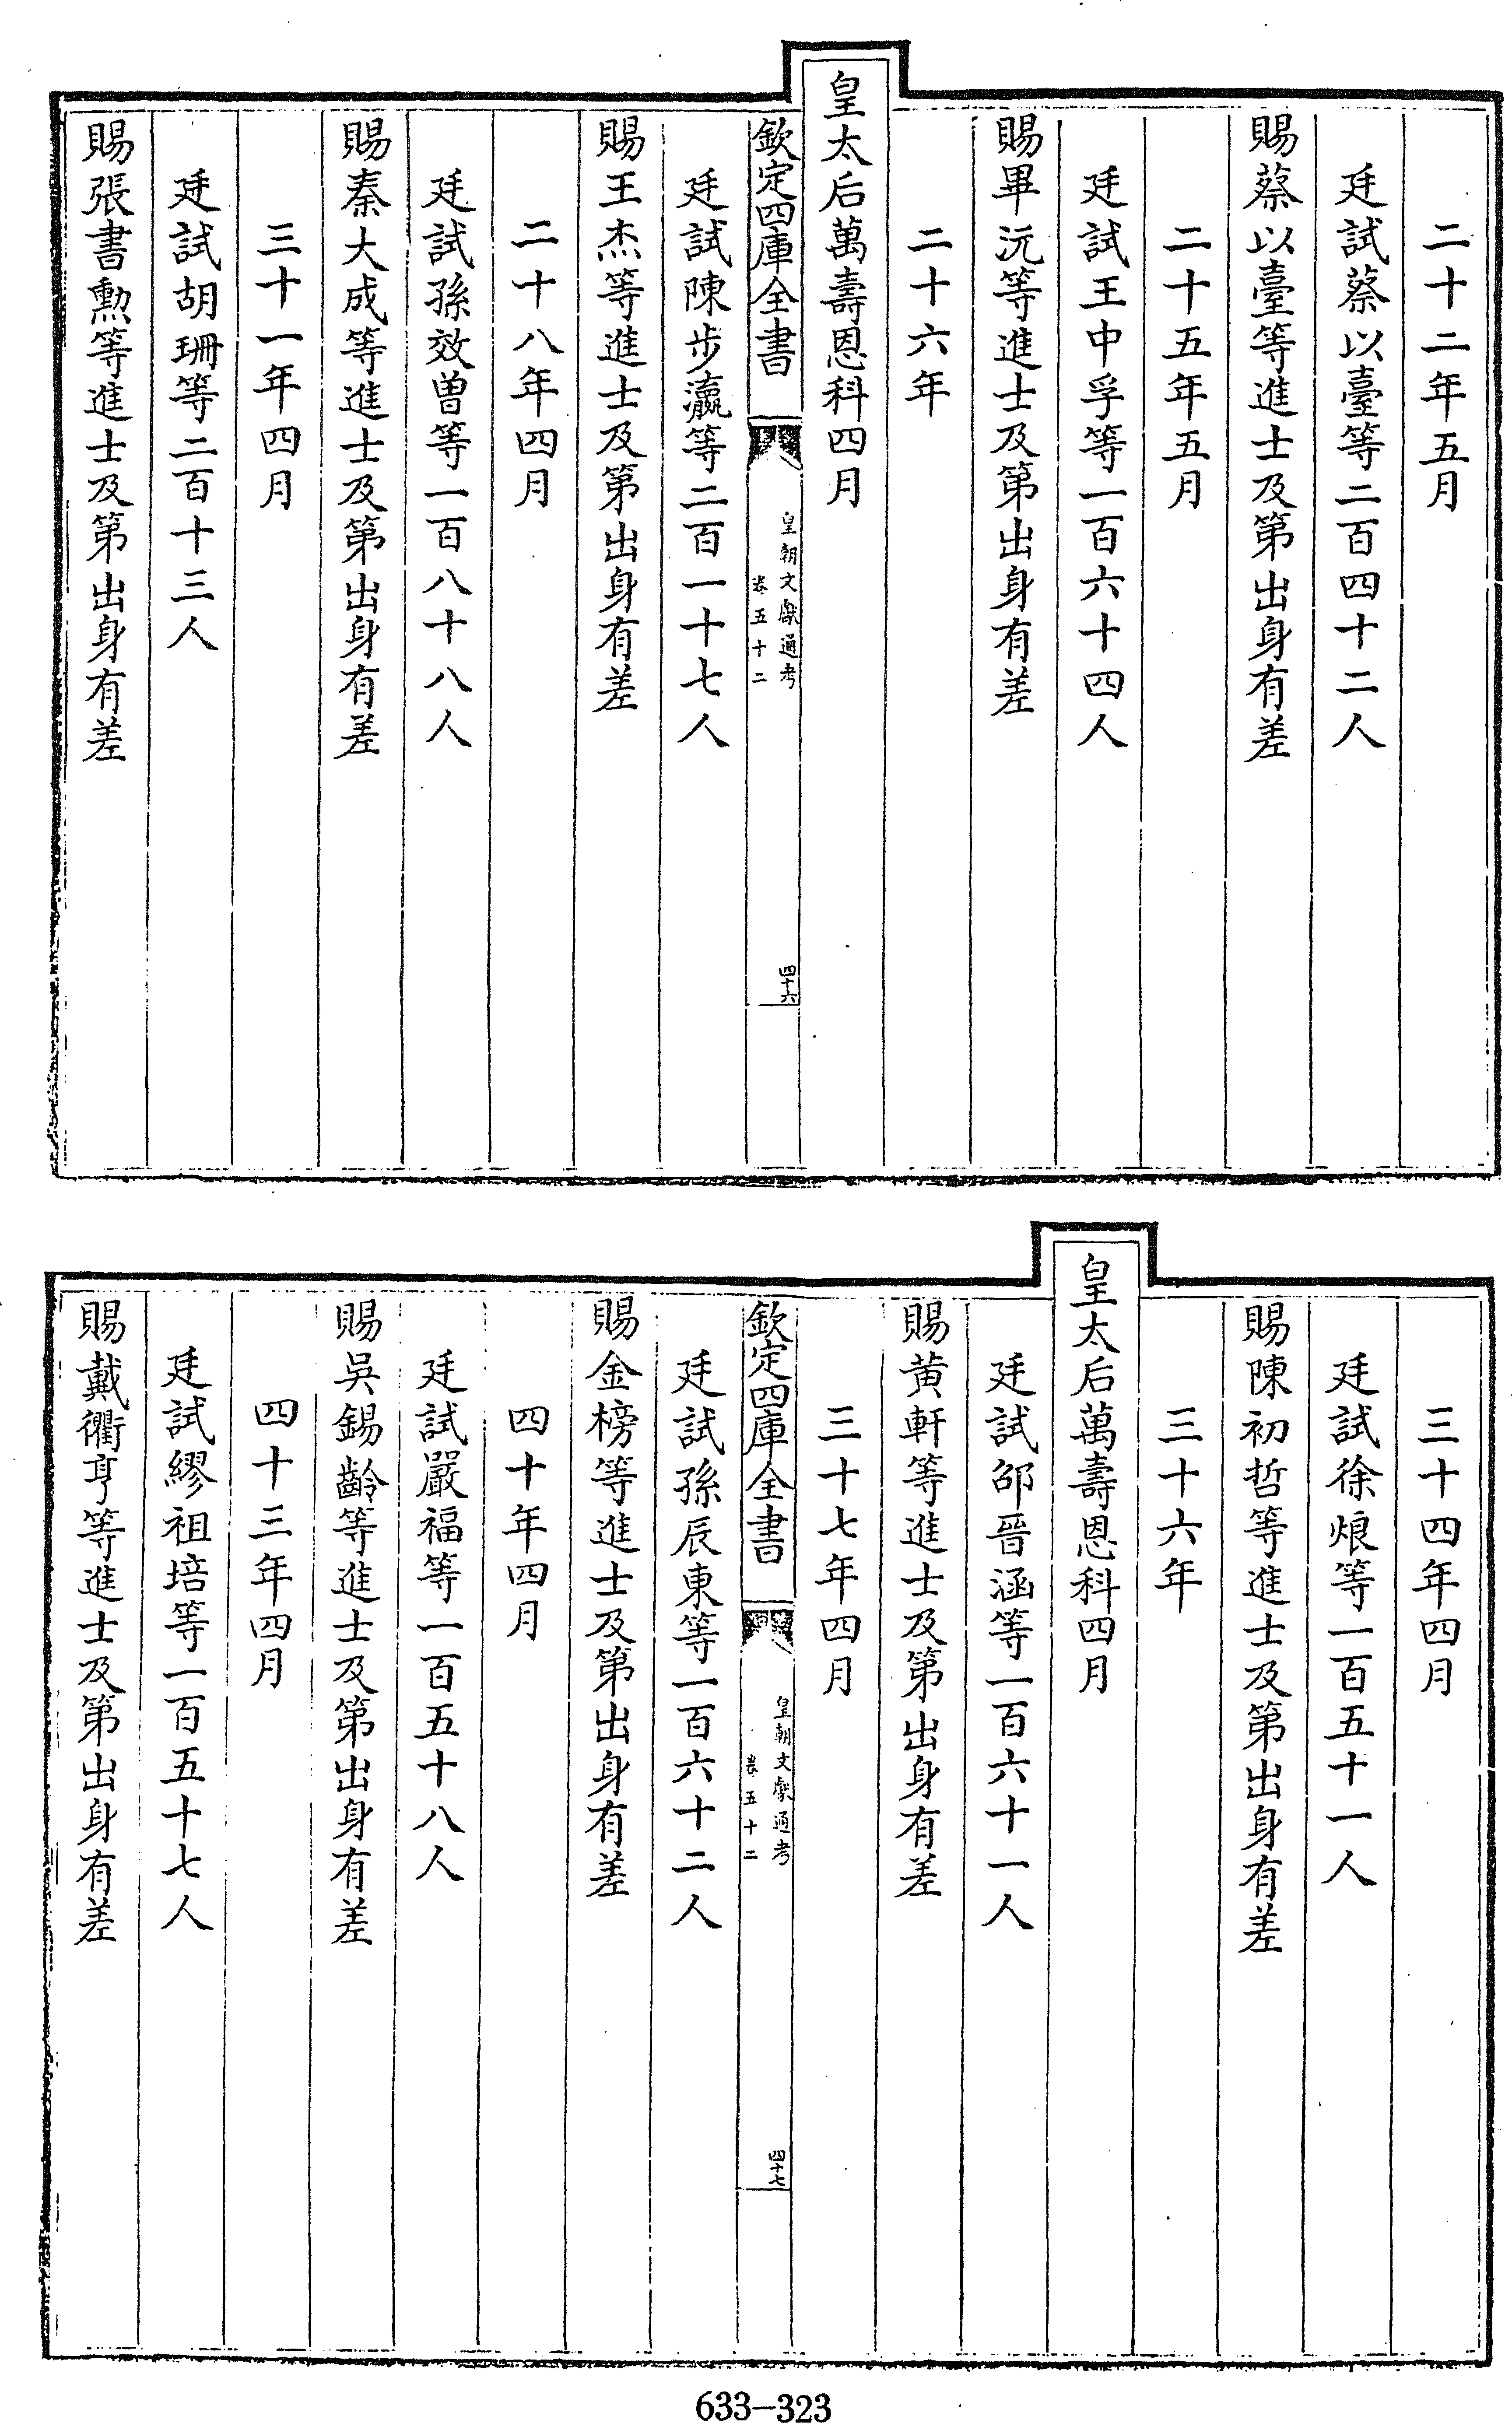 二十二年五月
廷試蔡以臺等二百四十二人
賜蔡以臺等進士及第出身有差
二十五年五月
廷試王中孚等一百六十四人
賜畢沅等進士及第出身有差
二十六年
皇太后萬壽恩科四月
欽定四庫全書
皇朝文獻通考
卷五十二
四十六
廷試陳步瀛等二百一十七人
賜王杰等進士及第出身有差
二十八年四月
廷試孫效曽等一百八十八人
賜秦大成等進士及第出身有差
三十一年四月
廷試胡珊等二百十三人
賜張書勲等進士及第出身有差
三十四年四月
廷試徐烺等一百五十一人
賜陳初哲等進士及第出身有差
三十六年
皇太后萬壽恩科四月
廷試邵晉涵等一百六十一人
賜黄軒等進士及第出身有差
三十七年四月
欽定四庫全書
皇朝文獻通考
卷五十二
四十七
廷試孫辰東等一百六十二人
賜金榜等進士及第出身有差
四十年四月
廷試嚴福等一百五十八人
賜吳錫齡等進士及第出身有差
四十三年四月
廷試繆祖培等一百五十七人
賜戴衢亨等進士及第出身有差
633-323